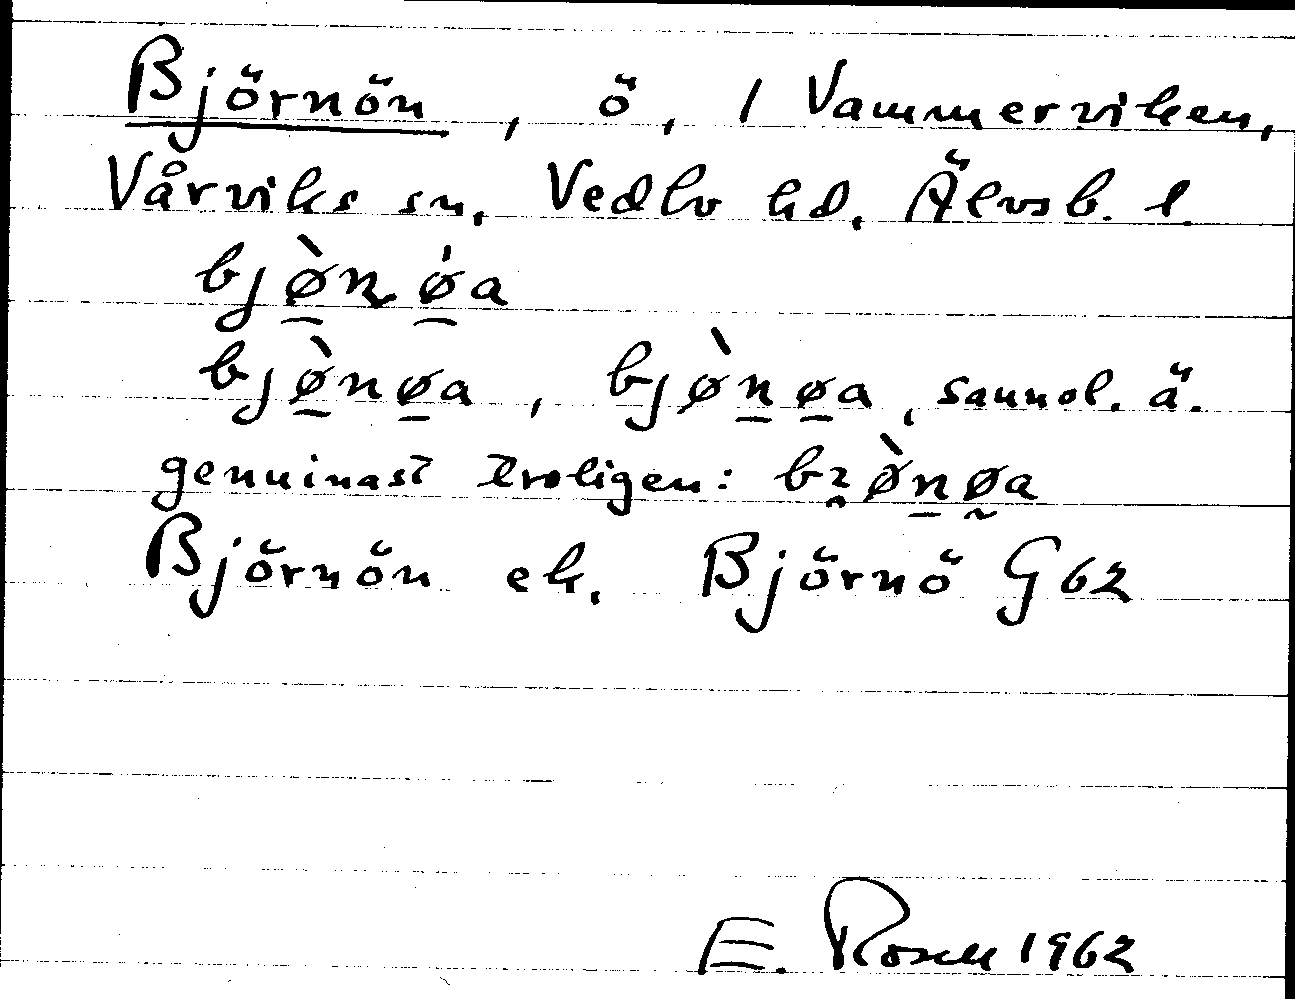 Björnön, ö, i Vammerviken,
Vårviks sn, Vedbo hd, Älvsb. l.
bjø̀ṇ ǿa
bjø̀nøa, bjø̀nøa, sannol. ä.
genuinast troligen: bʒø̀nøa
Björnön ek. Björnö G62
E. Rosell 1962